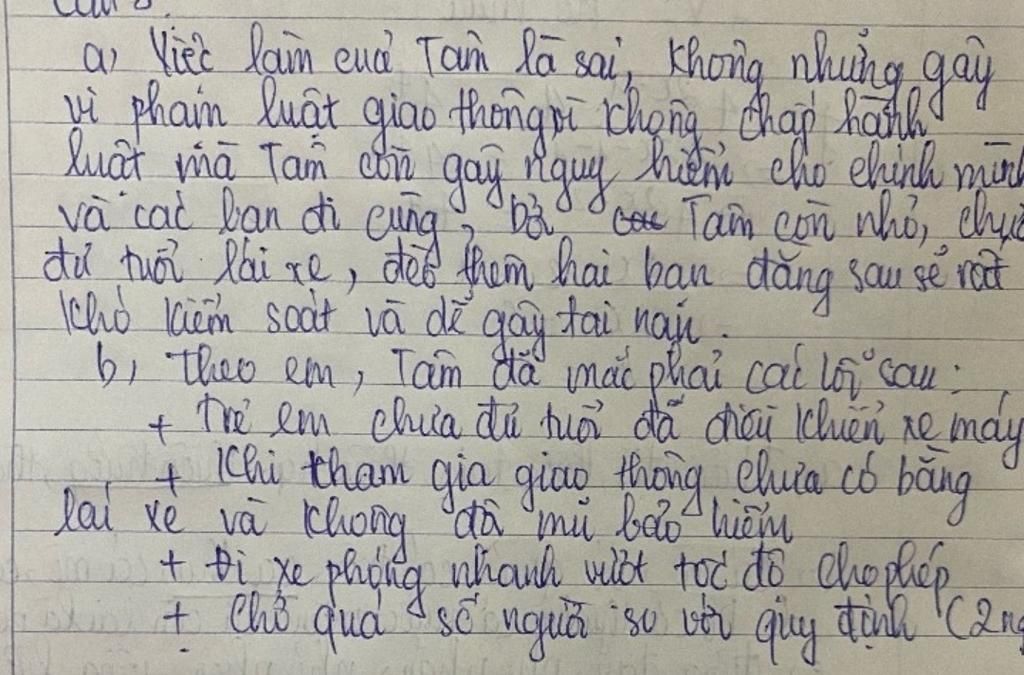 Câu 3.
a) Việc làm của Tâm là sai, không những gây
vi phạm luật giao thông vì không chấp hành
luật mà Tâm còn gây nguy hiểm cho chính mình
và các bạn đi cùng, bởi Tâm còn nhỏ, chưa
đủ tuổi lái xe, đèo thêm hai bạn đằng sau sẽ rất
khó kiểm soát và dễ gây tai nạn.
b) Theo em, Tâm đã mắc phải các lỗi sau:
+ Trẻ em chưa đủ tuổi đã điều khiển xe máy
+ Khi tham gia giao thông chưa có bằng
lái xe và không đội mũ bảo hiểm
+ Đi xe phóng nhanh vượt tốc độ cho phép
+ Chở quá số người so với quy định (2